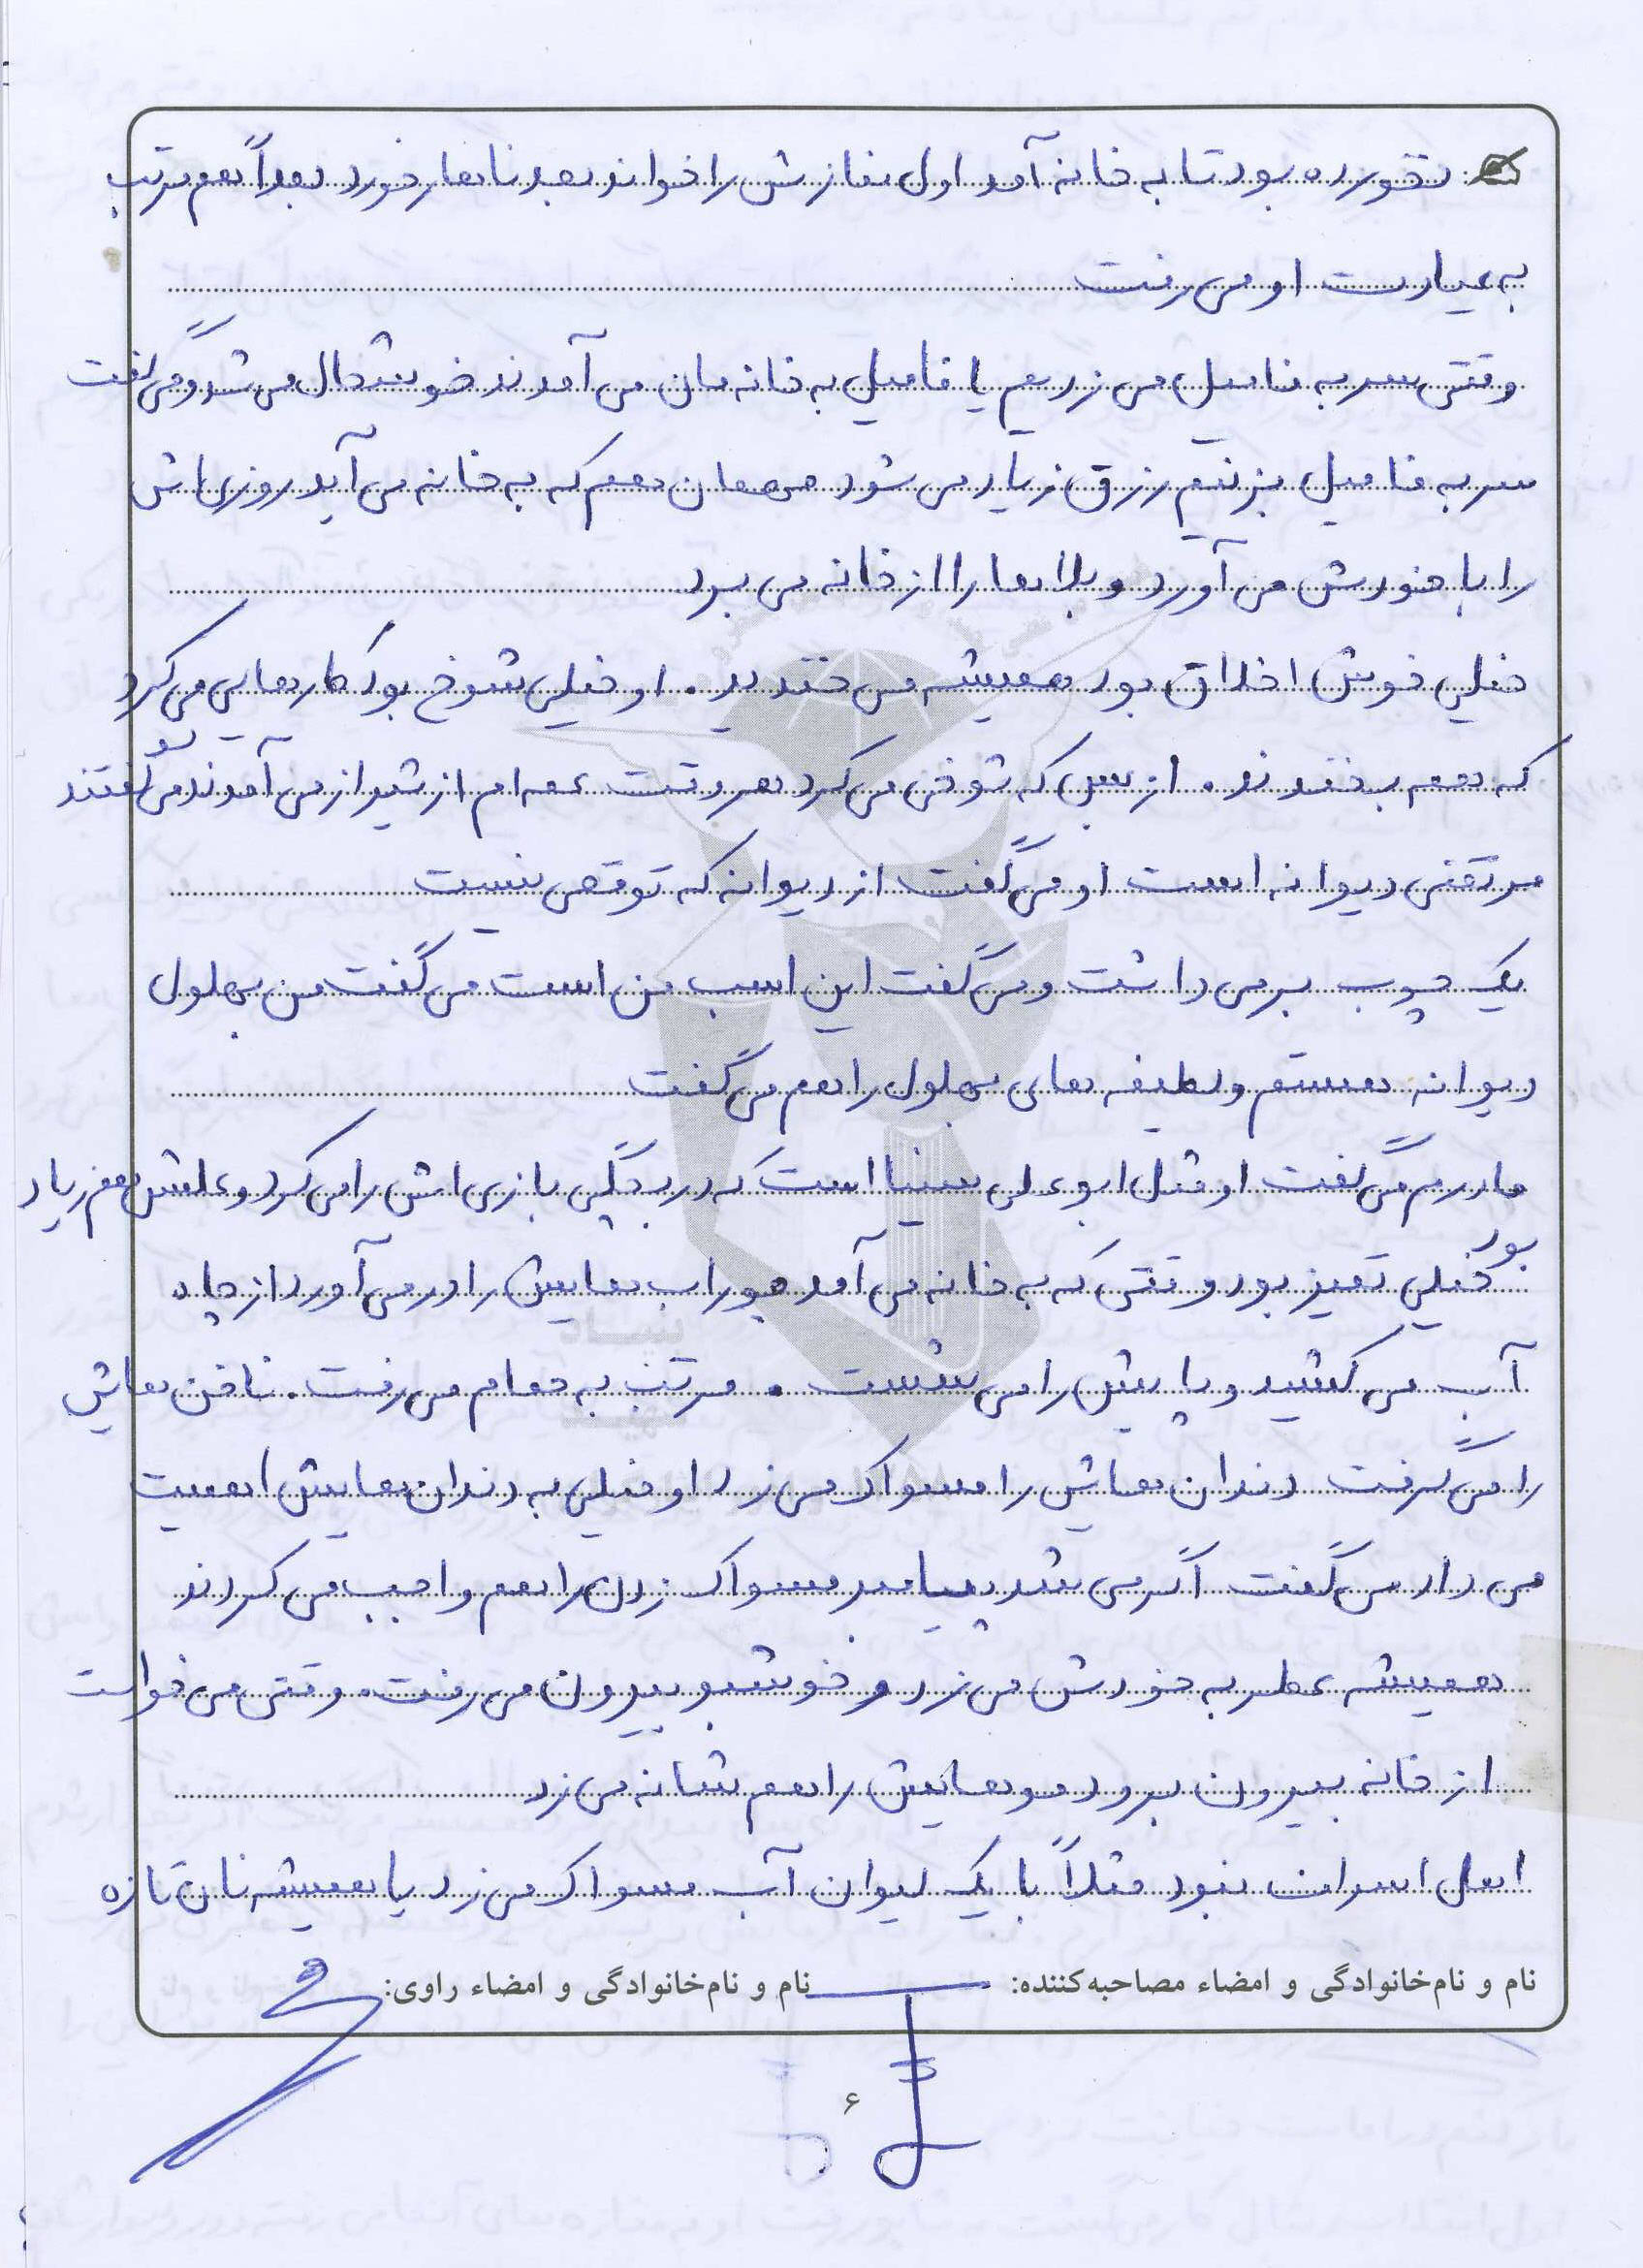 نخورده بود تا به خانه آمد اول نمازش را خواند بعد ناهار خورد بعداً هم مرتب
به عیادت او می رفت
وقتی سر به فامیل می زدیم یا فامیل به خانه مان می آمدند خوشحال می شد و می گفت
سر به فامیل بزنیم رزق زیاد می شود مهمان هم که به خانه می آید روزی اش
را با خودش می آورد و بلاها را از خانه می برد
خیلی خوش اخلاق بود همیشه می خندید. او خیلی شوخ بود کارهایی می کرد
که همه بخندند. از بس که شوخی می کرد هر وقت عمه ام از شیراز می آمدند می گفتند تو
مرتضی دیوانه است او می گفت از دیوانه که توقعی نیست
یک چوب بر می داشت و می گفت این اسب من است می گفت من بهلول
دیوانه هستم و لطیفه های بهلول را هم می گفت
مادرم می گفت او مثل ابوعلی سینا است که در بچگی بازی اش را می کرد و علمش هم زیاد
بود
خیلی تمیز بود وقتی که به خانه می آمد جوراب هایش را در می آورد از چاه
آب می کشید و پایش را می شست. مرتب به حمام می رفت. ناخن هایش
را می گرفت دندان هایش را مسواک می زد او خیلی به دندان هایش اهمیت
می داد می گفت اگر می شد پیامبر مسواک زدن را هم واجب می کردند
همیشه عطر به خودش می زد و خوشبو بیرون می رفت. وقتی می خواست
از خانه بیرون برود موهایش را هم شانه می زد
اهل اسراف نبود مثلاً با یک لیوان آب مسواک می زد یا همیشه نان تازه
نام و نام‌خانوادگی و امضاء مصاحبه‌کننده: نام و نام‌خانوادگی و امضاء راوی:
۶